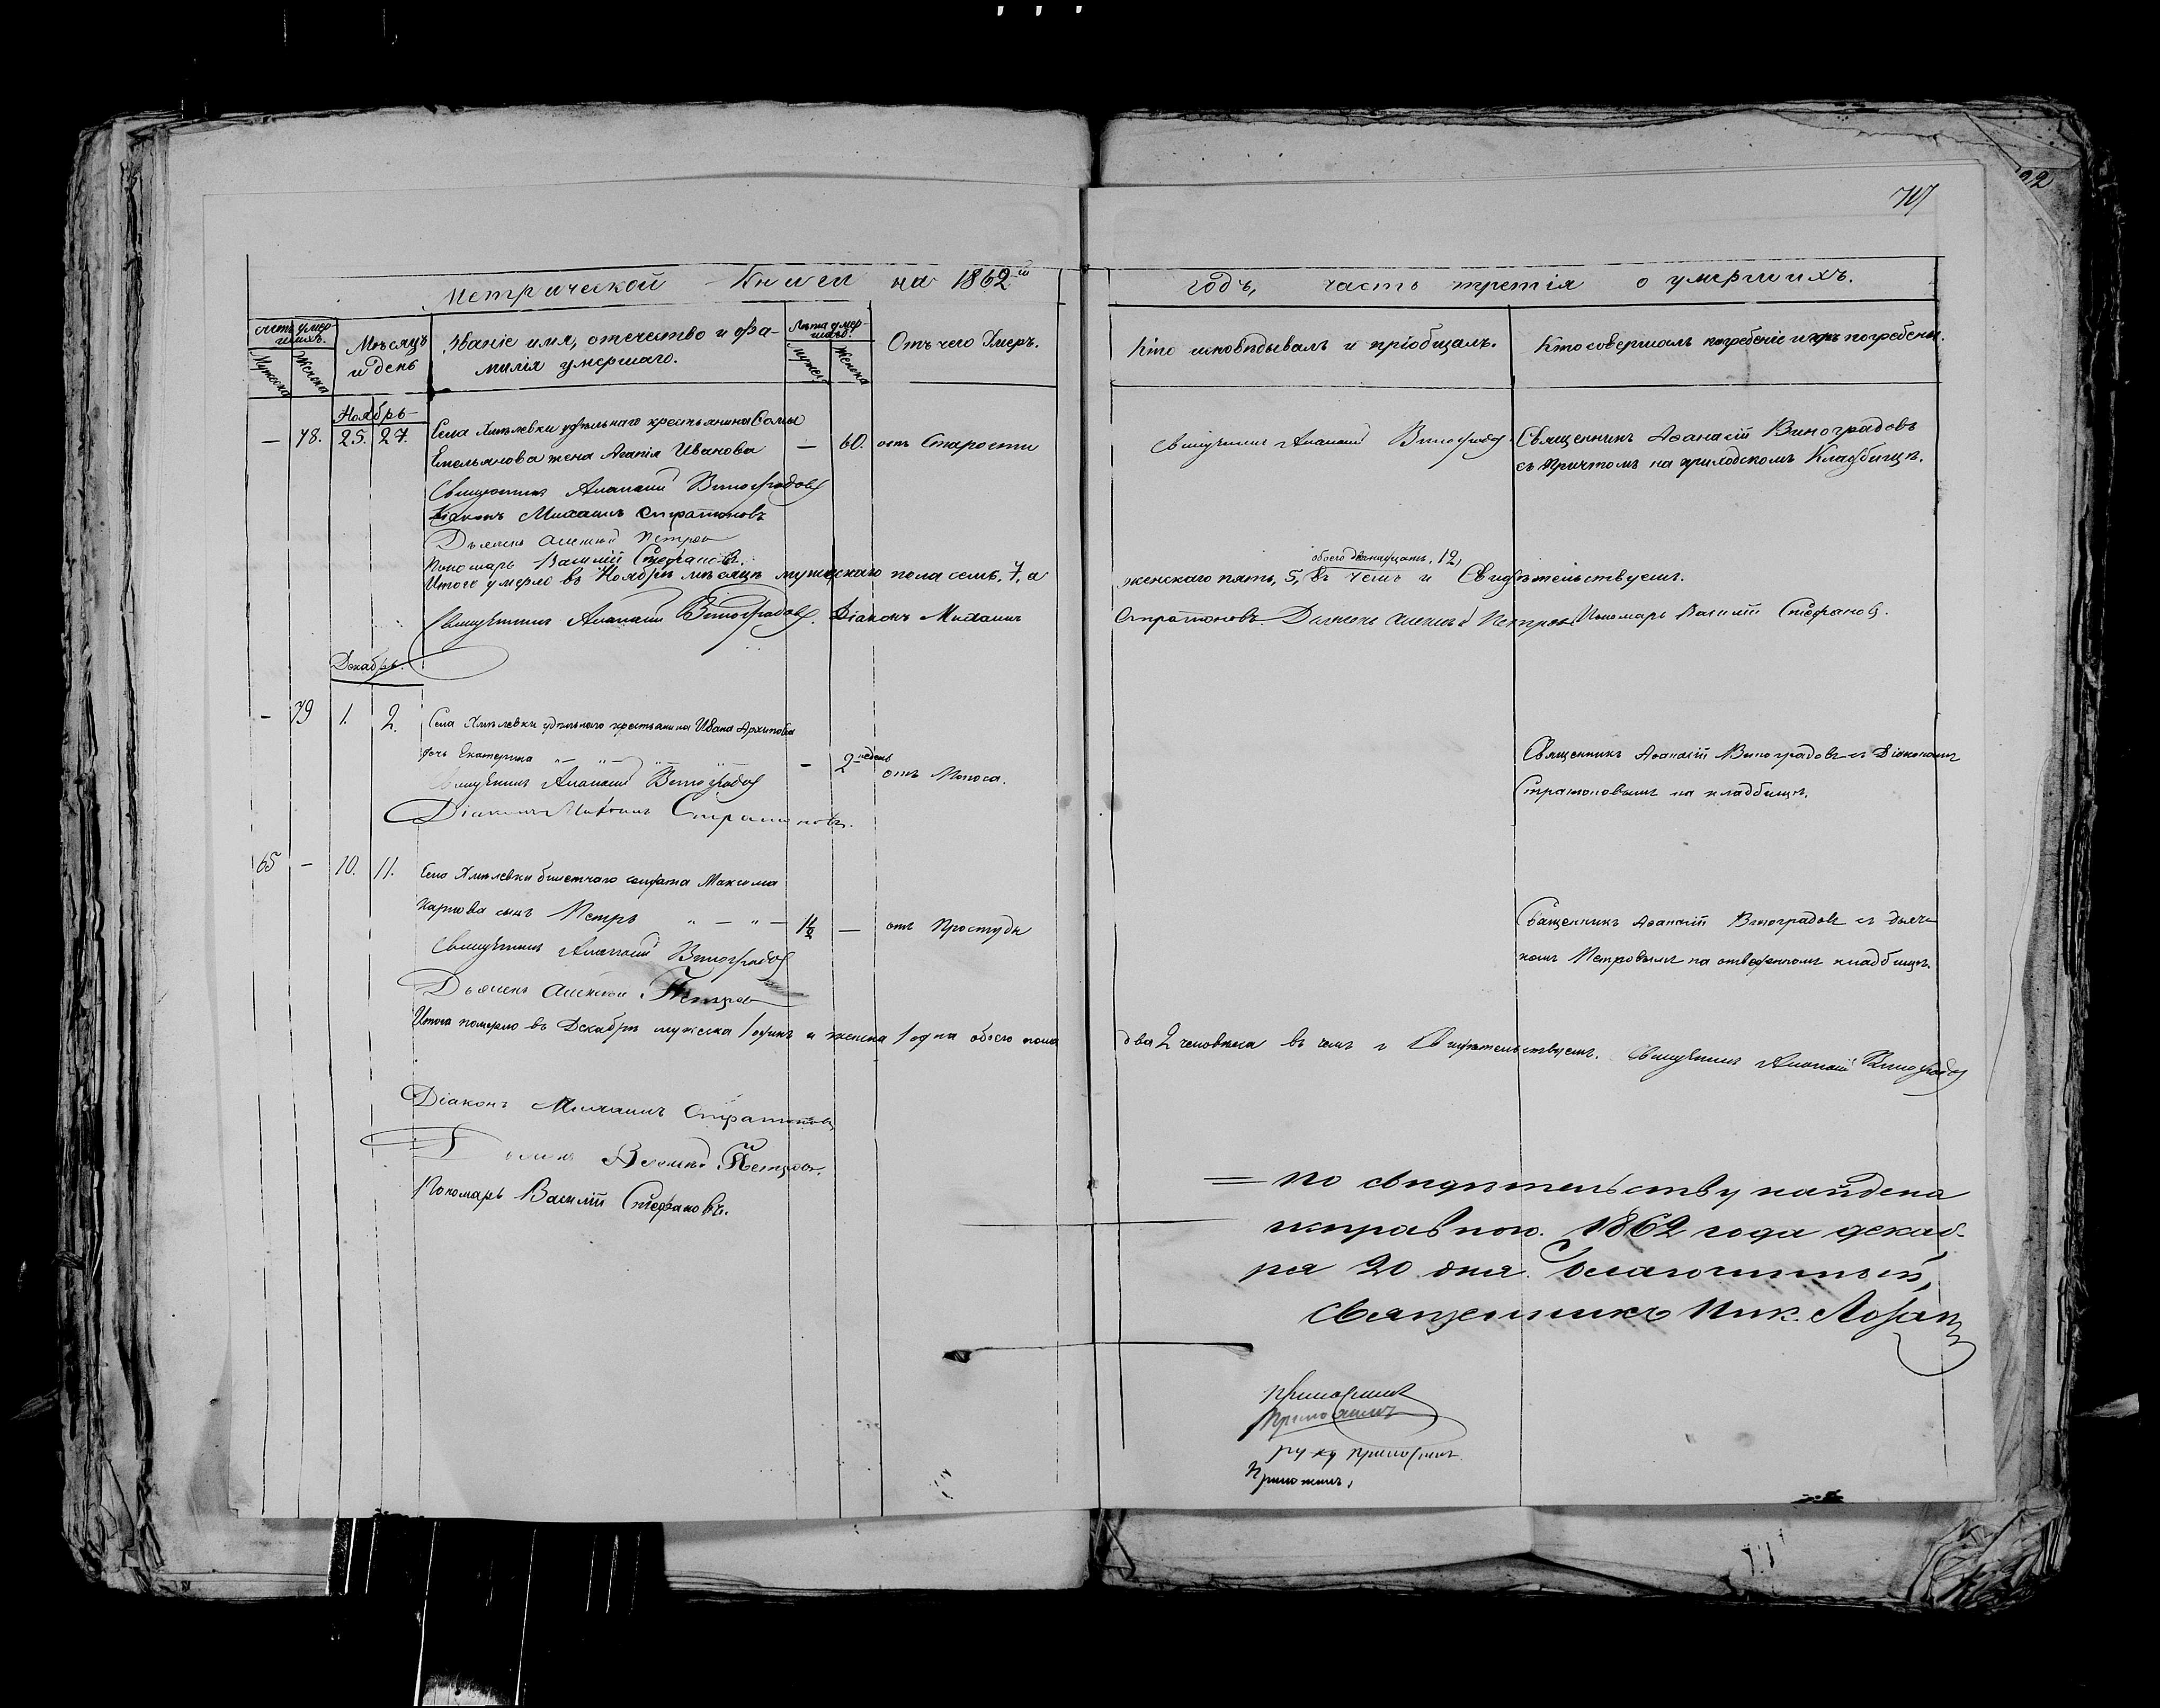 717
22
Метрической Книги на 1862й
годъ, часть третія о умершихъ.
счетъ умер-
шихъ.
Мужеска
Женска
Мѣсяцъ
и день
Званіе имя, отечество и фа-
милія умершаго.
Лѣта умер-
шаго.
Мужес.
Женска
Отъ чего Умеръ.
Кто исповѣдывалъ и пріобщалъ.
Кто совершалъ погребеніе и гдѣ погребены.
Ноябрь
— 78. 25. 27. Села Хмѣлевки удѣльнаго крестьянина Ѳомы
Емельянова жена Агапія Иванова — 60. отъ Старости
Священникъ Аѳанасій Виноградовъ
Священникъ Аѳанасій Виноградовъ
съ причтомъ на приходскомъ Кладбищѣ.
Священникъ Аѳанасій Виноградовъ
Діаконъ Михаилъ Стратоновъ
Дьячекъ Алексѣй Петров
Пономарь Василій Стефановъ.
Итого умерло въ Ноябрѣ мѣсяцѣ мужескаго пола семь, 7, а
обоего двѣнадцать, 12,
женскаго пять, 5, въ чемъ и Свидѣтельствуемъ.
Священникъ Аѳанасій Виноградовъ. Діаконъ Михаилъ
Стратоновъ Дьячекъ Алексѣй Петров Пономарь Василій Стефанов.
Декабрь.
— 79 1. 2. Села Хмѣлевки удѣльнаго крестьянина Ивана Архипова
дочь Екатерина — 2 недель отъ Поноса.
Священникъ Аѳанасій Виноградовъ съ Діакономъ
Стратоновымъ на кладбищѣ.
Священникъ Аѳанасій Виноградовъ
Діаконъ Михаилъ Стратоновъ.
65 — 10. 11. Села Хмѣлевки билетнаго солдата Максима
Карпова сынъ Петръ 1½ — отъ Простуды
Священникъ Аѳанасій Виноградовъ съ дьяч-
комъ Петровымъ на отведенномъ кладбищѣ.
Священникъ Аѳанасій Виноградовъ
Дьячекъ Алексѣй Петров
Итого померло въ Декабрѣ мужеска 1 одинъ и женска 1 одна обоего пола
два 2 человека въ чемъ и Свидѣтельствуемъ. Священникъ Аѳанасій Виноградовъ
Діаконъ Михаилъ Стратоновъ
Дьячекъ Алексѣй Петров.
Пономарь Василій Стефановъ.
= По свидѣтельству найдена
исправною. 1862 года декаб-
ря 20 дня. Благочинный,
Священникъ Ник.
Приложилъ
Приложилъ
руку приложилъ
Приложилъ,